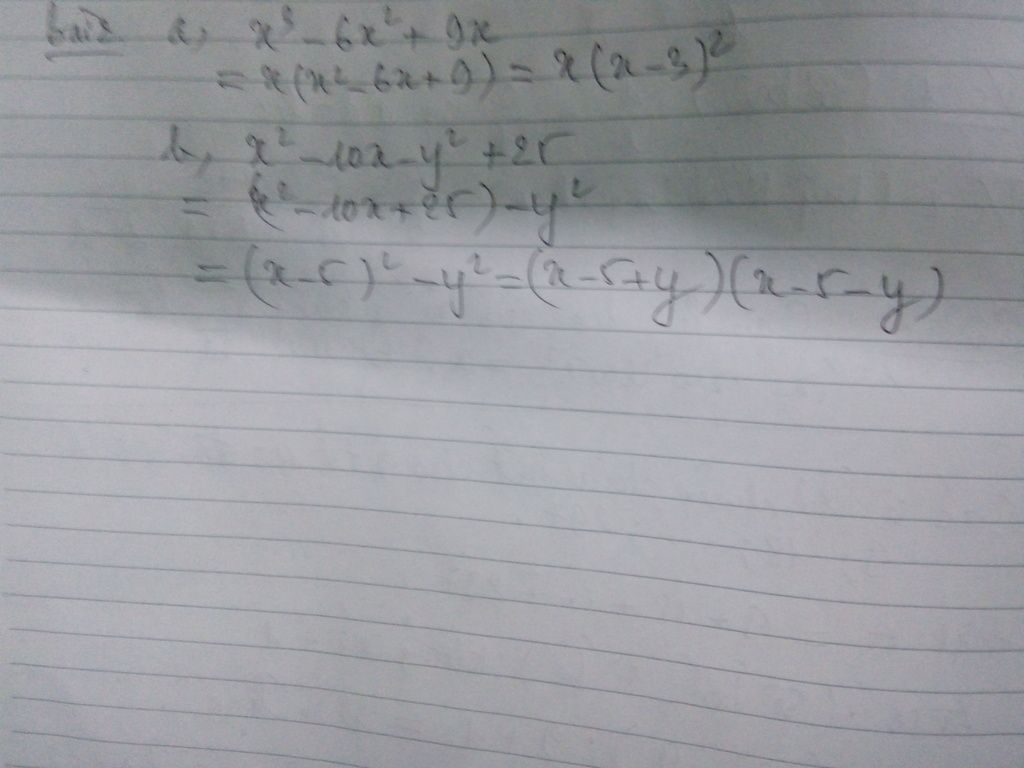 bài 2 a, x³ - 6x² + 9x
= x(x² - 6x + 9) = x(x - 3)²
b, x² - 10x - y² + 25
= (x² - 10x + 25) - y²
= (x - 5)² - y² = (x - 5 + y)(x - 5 - y)